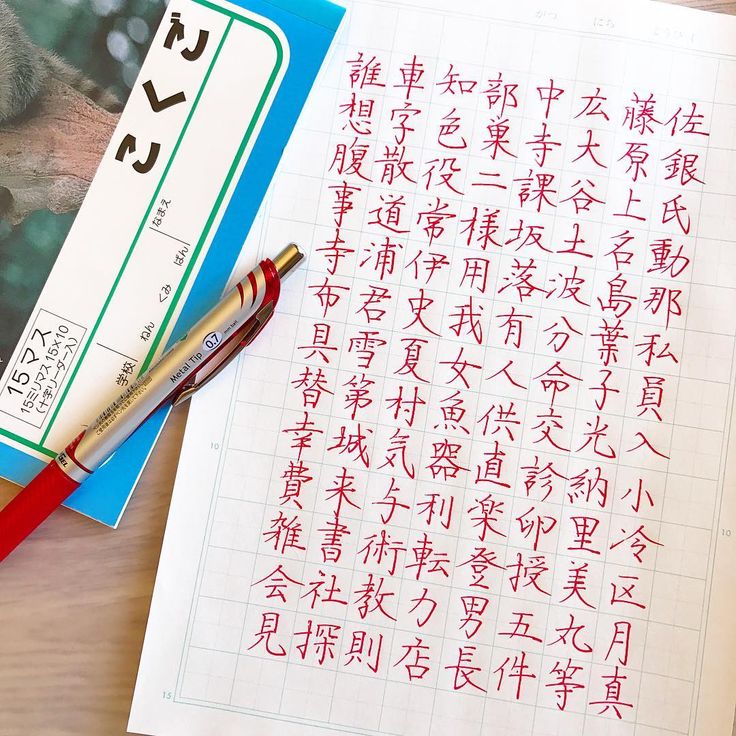 がつ にち
佐銀氏動那私員入小冷区月真
藤原上名島葉子光納里美丸等
広大谷土波分命交診卵授五件
中寺課坂落有人供直楽登男長
部巣二様用我女魚器利転力店
知色役常伊史夏村気与術教則
車字散道浦君雪第城来書社探
誰想腹事寺布具替幸費雑会見
10
10
15
こくご
なまえ
学校 ねん くみ ばん
15マス
15ミリマス 15×10
(十字リーダー入)
Metal Tip 0.7 mm ball